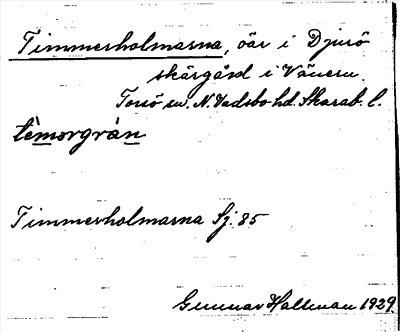 Timmerholmarna, öar i Djurö
skärgård i Vänern.
Torsö sn. N. Vadsbo hd. Skarab. l.
tèmərgràn
Timmerholmarna Sj. 85
Gunnar Hallman 1929.